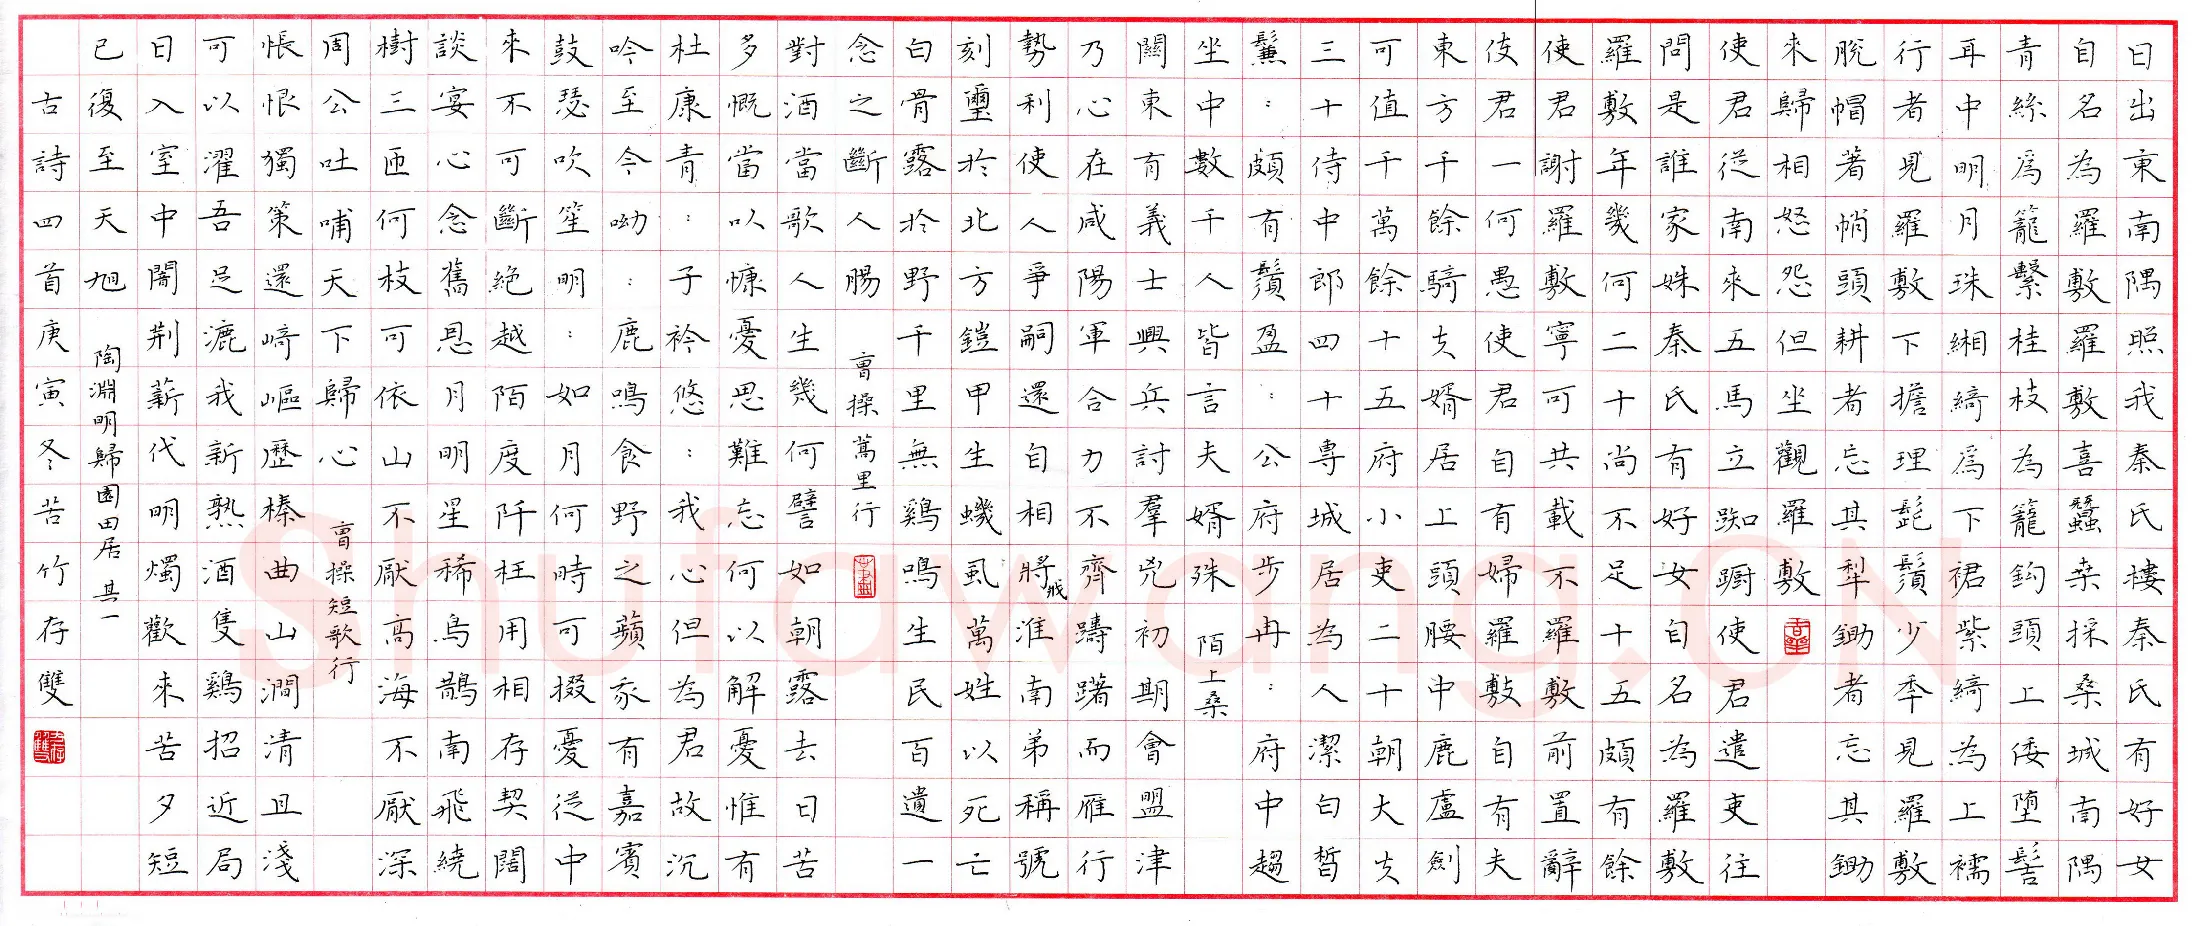 日出東南隅照我秦氏樓秦氏有好女
自名為羅敷羅敷喜蠶桒採桑城南隅
青絲爲籠繫桂枝為籠鈎頭上倭堕髻
耳中明月珠緗綺爲下裙紫綺為上襦
行者見羅敷下擔理髭鬚少秊見羅敷
脫帽著帩頭耕者忘其犁鋤者忘其鋤
來歸相怒怨但坐觀羅敷
使君從南來五馬立踟躕使君遣吏往
問是誰家姝秦氏有好女自名為羅敷
羅敷年幾何二十尚不足十五頗有餘
使君謝羅敷寧可共載不羅敷前置辭
使君一何愚使君自有婦羅敷自有夫
東方千餘騎夫婿居上頭腰中鹿盧劍
可值千萬餘十五府小吏二十朝大夫
三十侍中郎四十專城居為人潔白皙
鬑：頗有鬚盈：公府步冉：府中趨
坐中數千人皆言夫婿殊 陌上桑
關東有義士興兵討羣兇初期會盟津
乃心在咸陽軍合力不齊躊躇而雁行
勢利使人爭嗣還自相將戕淮南弟稱號
刻璽於北方鎧甲生蟣虱萬姓以死亡
白骨露於野千里無鷄鳴生民百遺一
念之斷人腸 曹操蒿里行
對酒當歌人生幾何譬如朝露去日苦
多慨當以慷憂思難忘何以解憂惟有
杜康青：子衿悠：我心但為君故沉
吟至今呦：鹿鳴食野之蘋我有嘉賓
鼓瑟吹笙明：如月何時可掇憂從中
來不可斷絕越陌度阡枉用相存契闊
談宴心念舊恩月明星稀烏鵲南飛繞
樹三匝何枝可依山不厭高海不厭深
周公吐哺天下歸心 曹操短歌行
悵恨獨策還崎嶇歷榛曲山澗清且淺
可以濯吾足漉我新熟酒隻鷄招近局
日入室中闇荊薪代明燭歡來苦夕短
已復至天旭 陶淵明歸園田居其一
古詩四首庚寅冬苦竹存雙
Shufawang.CN